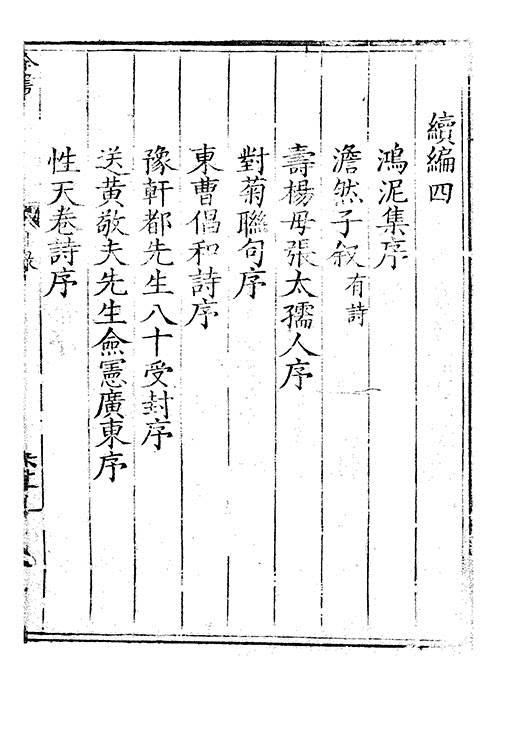 續編四
鴻泥集序
澹然子叙有詩
壽楊母張太孺人序
對菊聯句序
東曹倡和詩序
豫軒都先生八十受封序
送黃敬夫先生僉憲廣東序
性天卷詩序